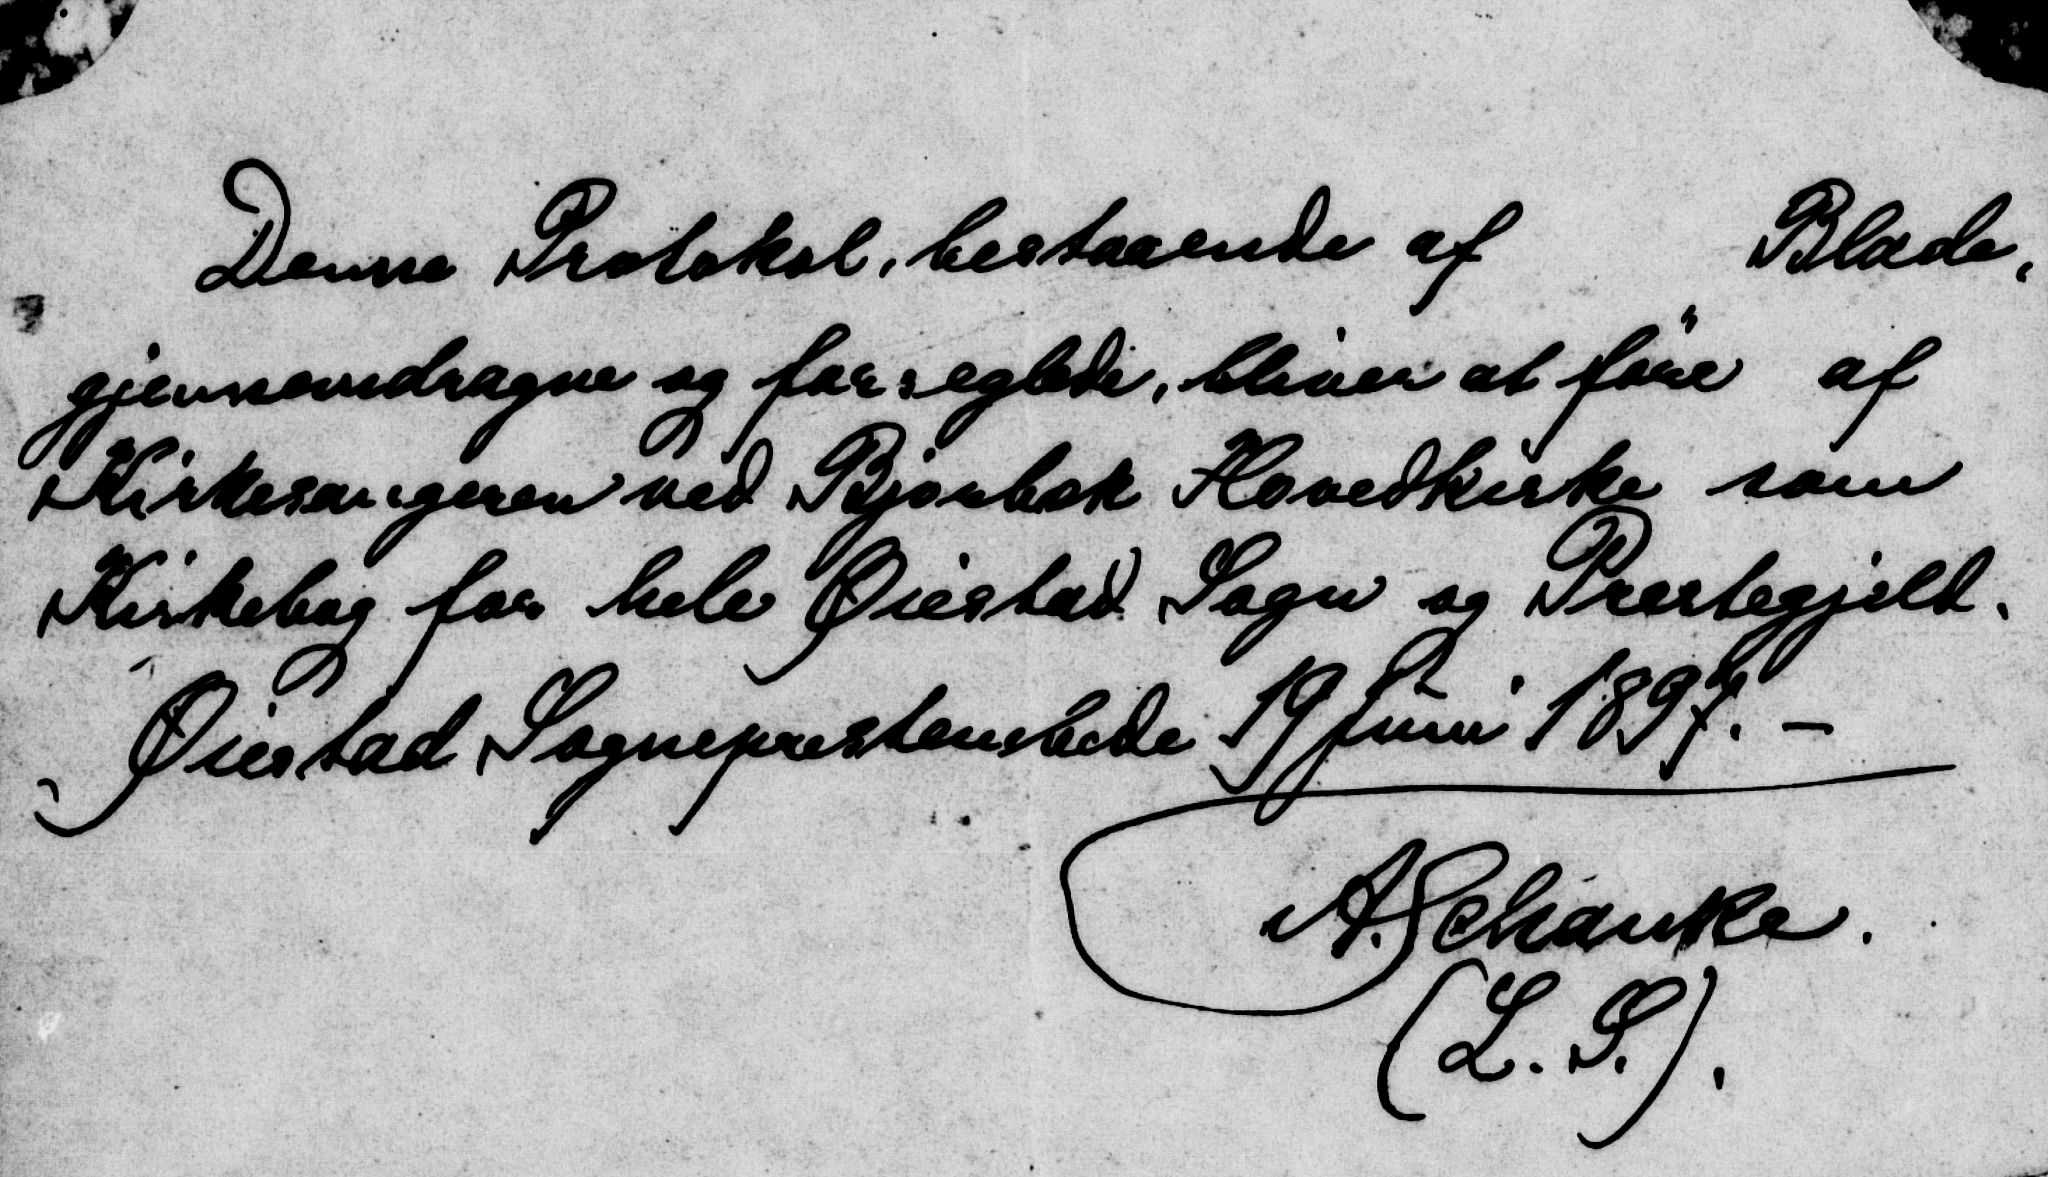 Denne Protokol, bestaaende af Blade,
gjennemdragne og forseglede, bliver at före af
Kirkesangeren ved Bjorbek Hovedkirke som
Kirkebog for hele Øiestad Sogn og Prestegjeld.
Øiestad Sogneprestembede 19 Juni 1897. –
A. Schanke.
(L. S.).